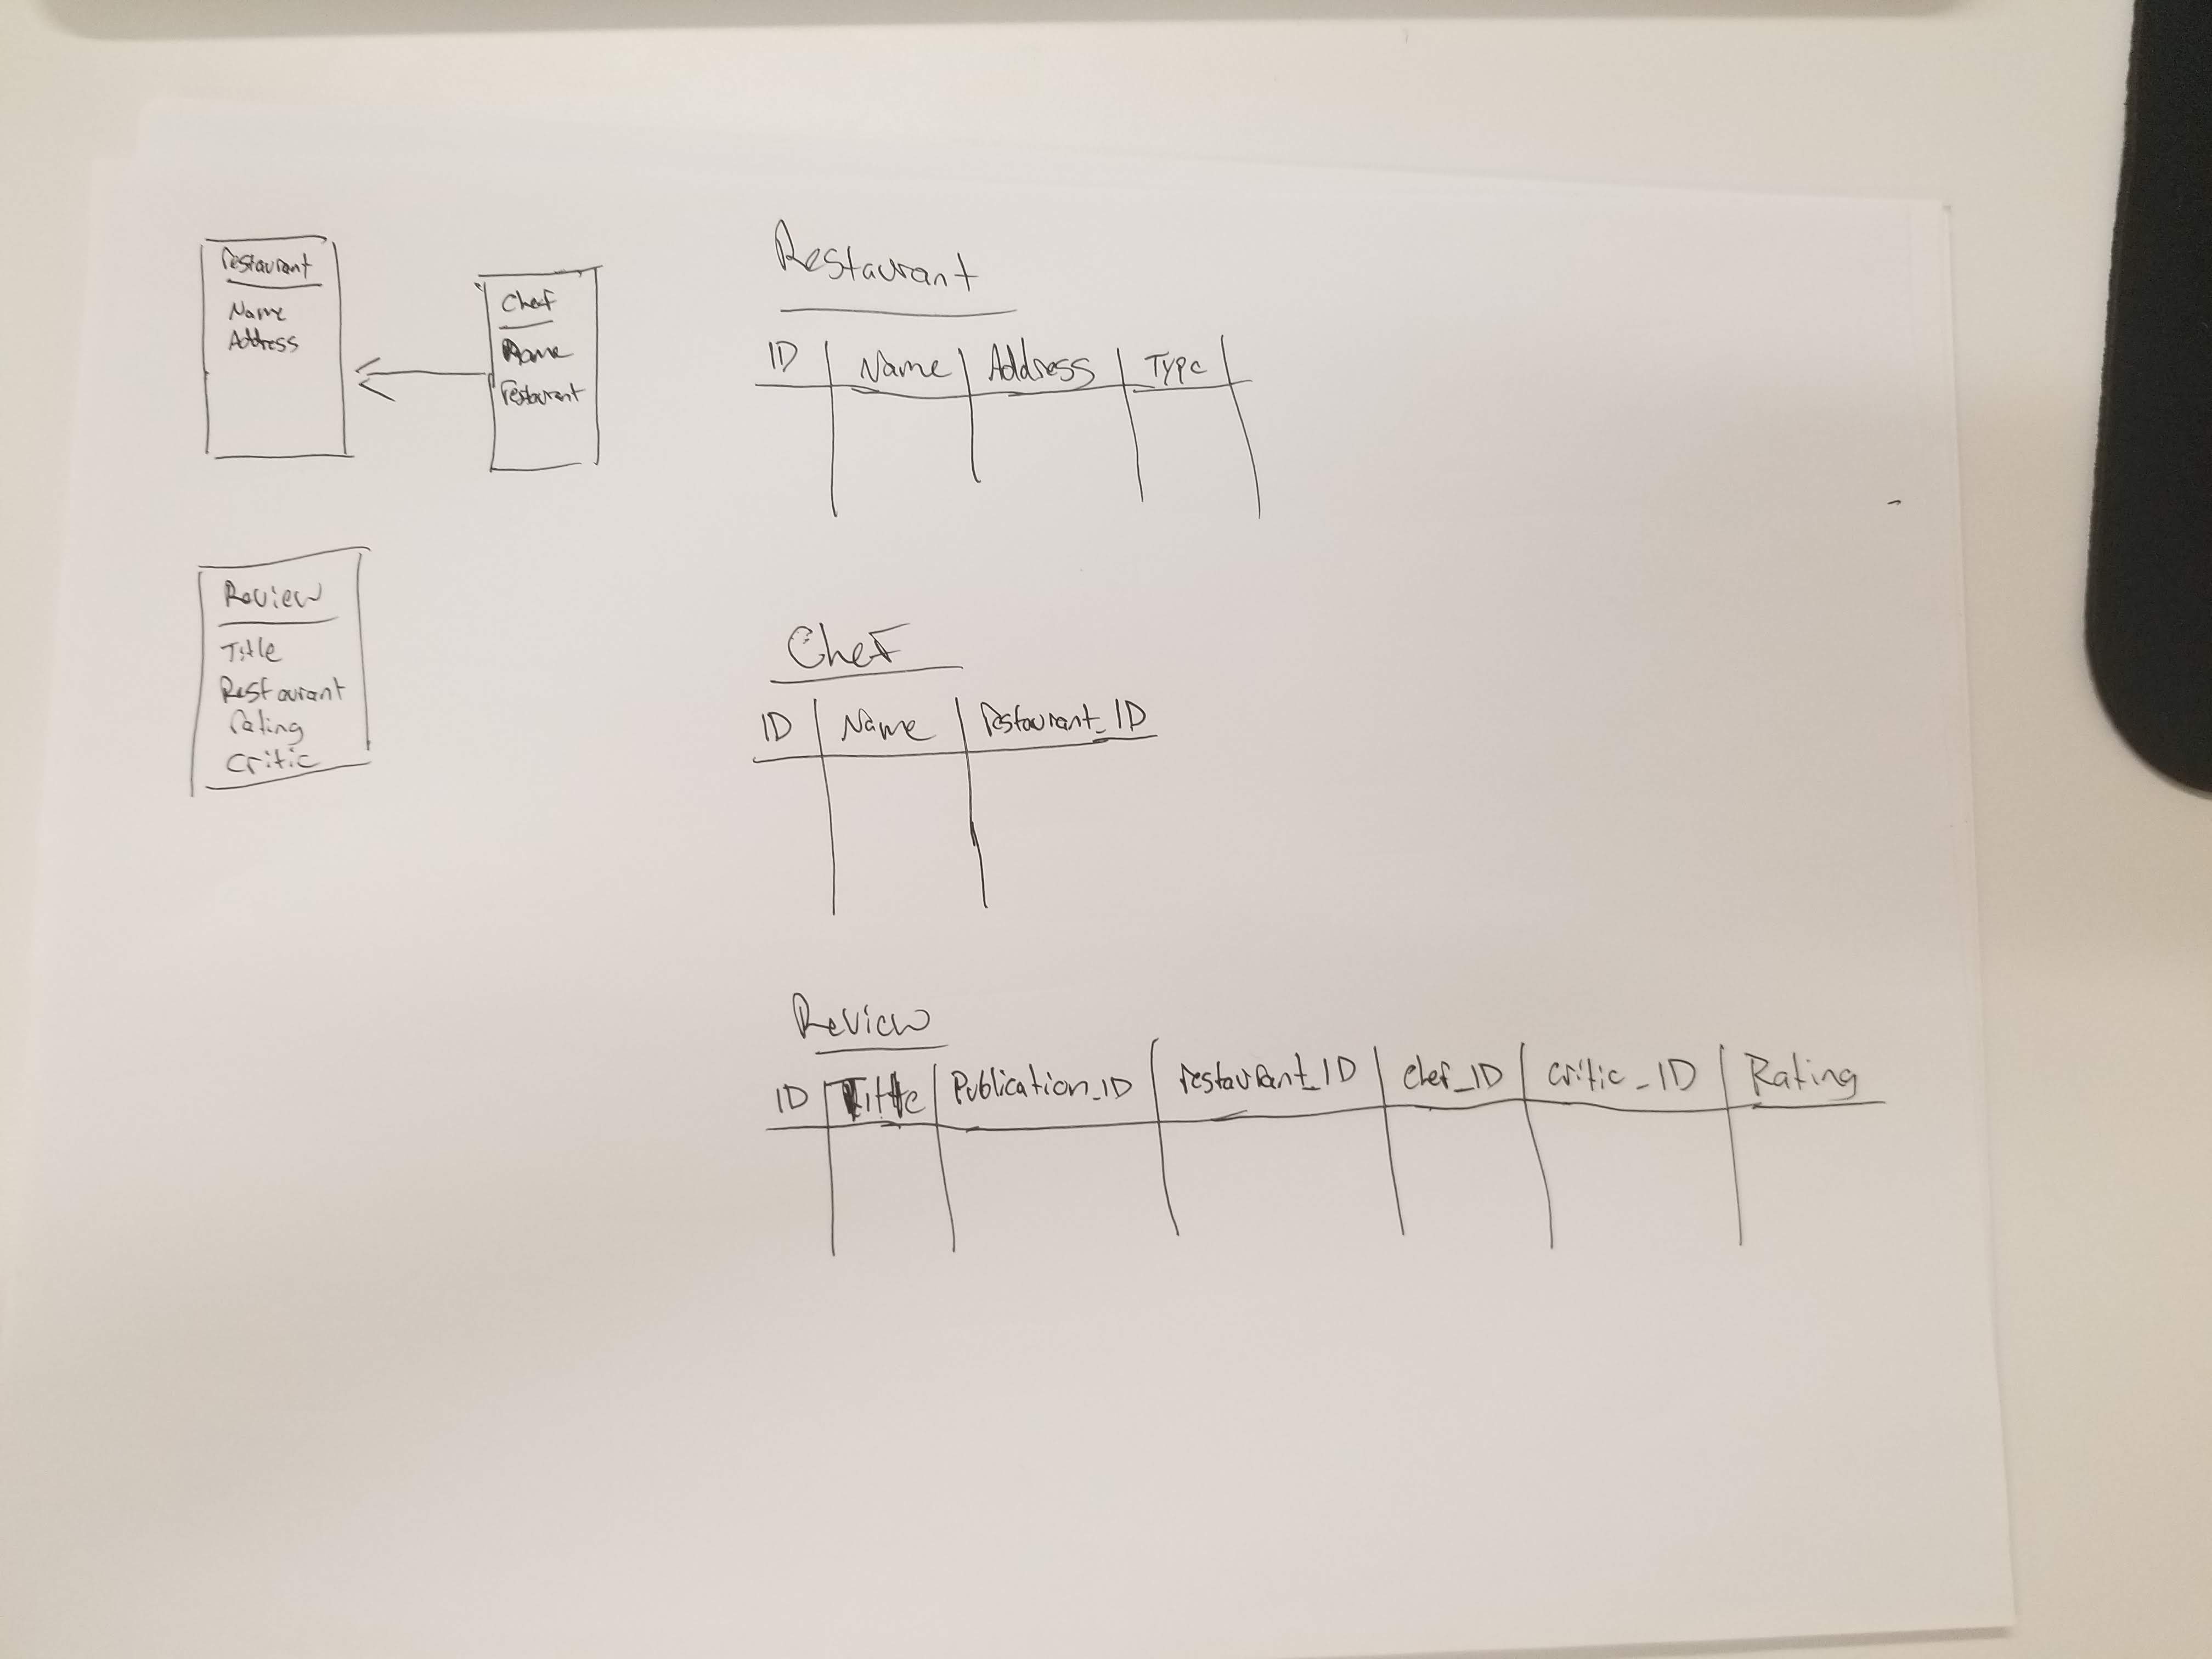 restaurant
Name
Address
Chef
Name
restaurant
Review
Title
Restaurant
rating
critic
Restaurant
ID | Name | Address | Type |
Chef
ID | Name | restaurant_ID
Review
ID | Title | Publication_ID | restaurant_ID | chef_ID | critic_ID | Rating